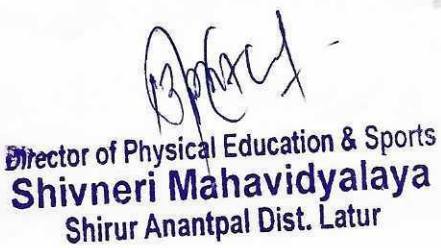 Director of Physical Education & Sports
Shivneri Mahavidyalaya
Shirur Anantpal Dist. Latur